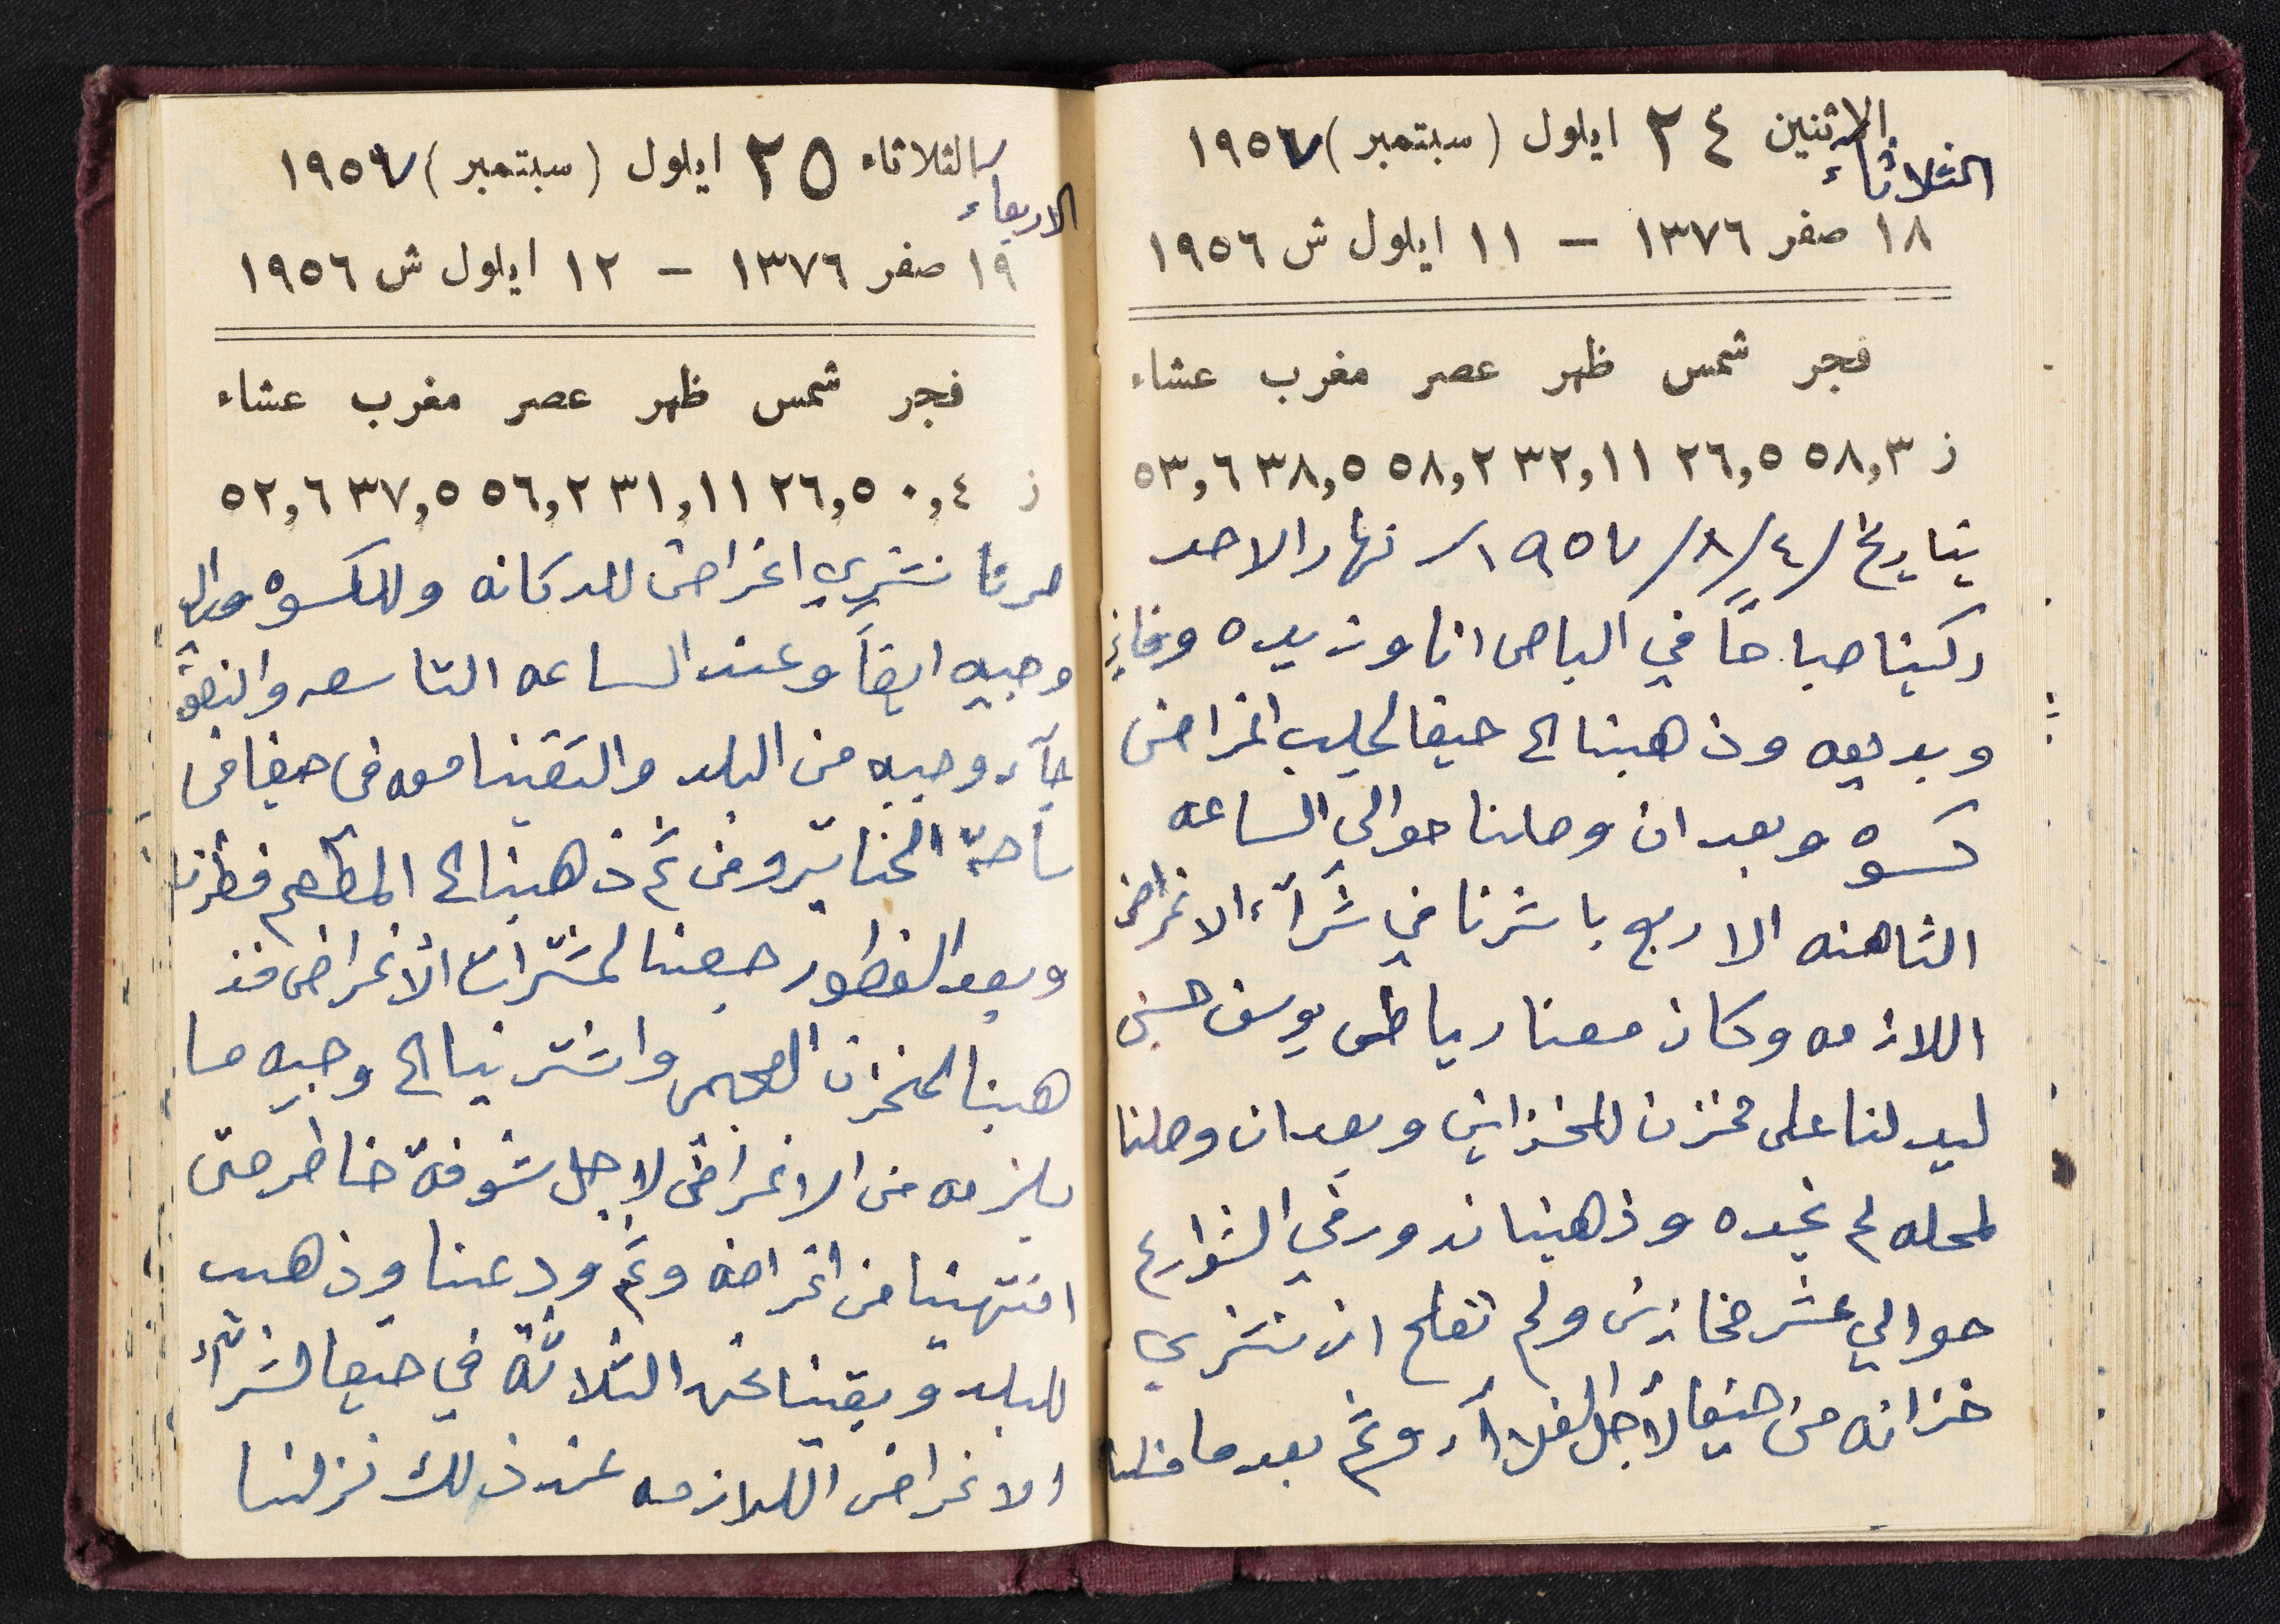 الاثنين ٢٤ ايلول (سبتمبر) ١٩٥٧
الثلاثاء
١٨ صفر ١٣٧٦ – ١١ ايلول ش ١٩٥٦
فجر شمس ظهر عصر مغرب عشاء
ز ٥٨,٣ ٢٦,٥ ٣٢,١١ ٥٨,٢ ٣٨,٥ ٥٣,٦
بتاريخ ٤/٨/١٩٥٧ نهار الاحد
ركبنا صباحاً في الباص انا وزيده وفايز
وبديعه وذهبنا الى حيفا لجلب اغراض
كسوه وبعد ان وصلنا حوالي الساعه
الثامنه الا ربع باشرنا في شرآء الاغراض
اللازمه وكان معنا رياض يوسف حسين
ليدلنا على مخزن للخزاين وبعد ان وصلنا
لمحله لم نجده وذهبنا ندور في الشوارع
حوالي عشر مخازن ولم نفلح ان نشتري
خزانه من حيفا لأجل الغلاء وثم بعد ما فشلنا
الثلاثاء ٢٥ ايلول (سبتمبر) ١٩٥٧
الاربعاء
١٩ صفر ١٣٧٦ – ١٢ ايلول ش ١٩٥٦
فجر شمس ظهر عصر مغرب عشاء
ز ٠,٤ ٢٦,٥ ٣١,١١ ٥٦,٢ ٣٧,٥ ٥٢,٦
صرنا نشتري اغراض للدكانه وللكسوه
وجيه ايضاً وعند الساعه التاسعه والنصف
جآء وجيه من البلد والتقينا معه في حيفا في
ساحة الحناتير ومن ثم ذهبنا الى المطعم فطرنا
وبعد الفطور رجعنا لمشترات الأغراض فذ
هبنا لمخزن واشترينا الى وجيه ما
يلزمه من الاغراض لاجل شوفة خاطر حتى
انتهينا من اغراضه وثم ودعنا وذهب
للبلد وبقينا نحن الثلاثة في حيفا لشرآء
الاغراض اللازمه عند ذلك نزلنا